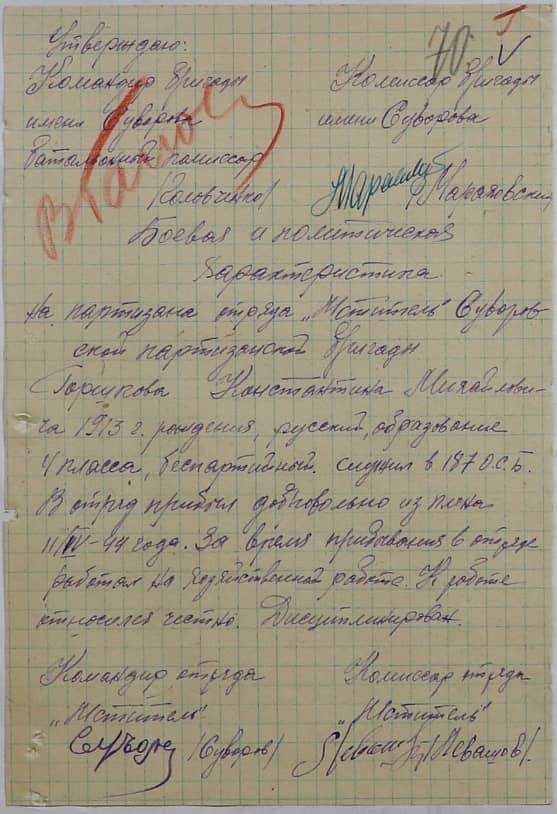 70
Утверждаю:
Командир бригады Комиссар бригады
имени Суворова имени Суворова
Батальонный комиссар
/Маратовский/
Боевая и политическая
характеристика
на партизана отряда „Мститель" Суворов-
ской партизанской бригады
Горшкова Константина Михайлови-
ча 1913 г. рождения, русский, образование
4 класса, беспартийный. служил в 187 О.С.Б.
В отряд прибыл добровольно из плена
-44 года. За время пребывания в отряде
работал на хозяйственной работе. К работе
относился честно. Дисциплинирован.
Командир отряда Комиссар отряда
„Мститель" „Мститель"
/Суворов/ /Левашов/